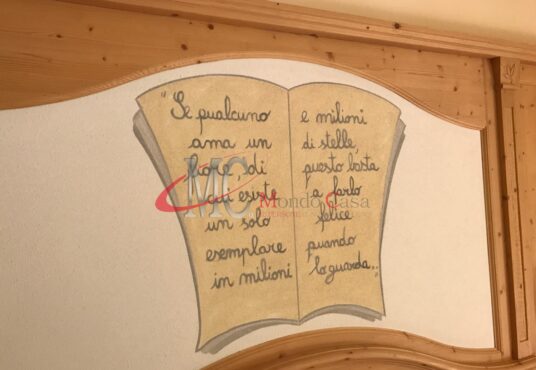 "Se qualcuno
ama un
fiore, di
cui esiste
un solo
esemplare
in milioni
e milioni
di stelle,
questo basta
a farlo
felice
quando
lo guarda..
MC Mondo Casa